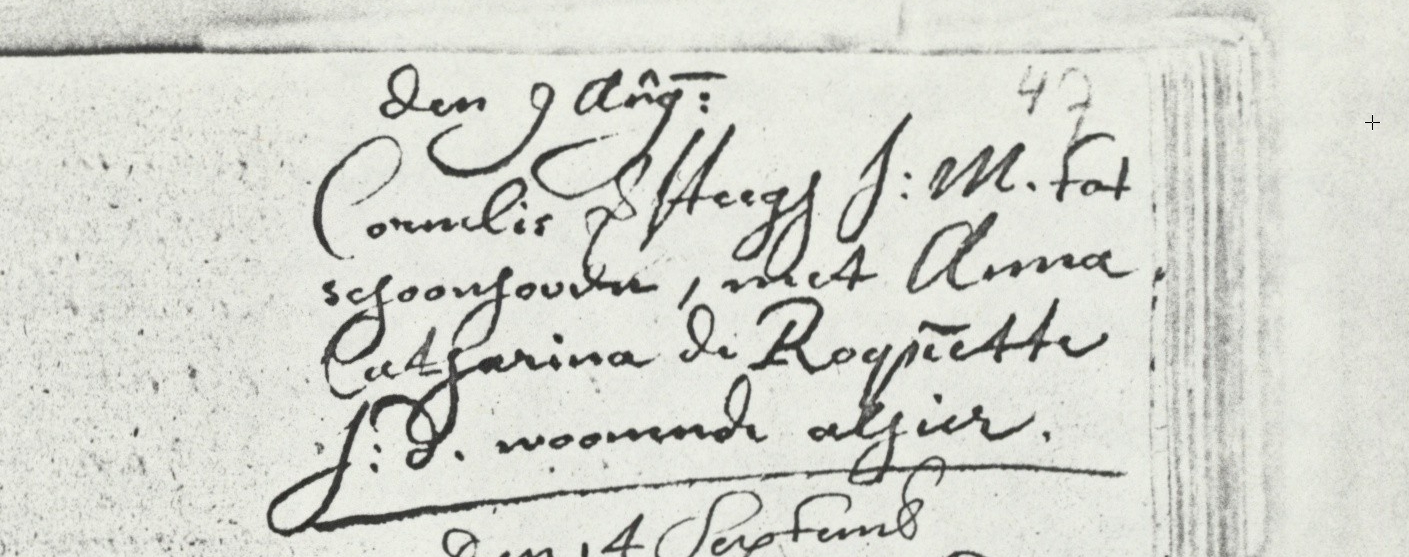 den 9 Aug:
47
Cornelis Steegs J: M. tot
schoonhoven, met Anna
Catharina de Roquette
J: d. woonende alhier.
den 14 Septemb